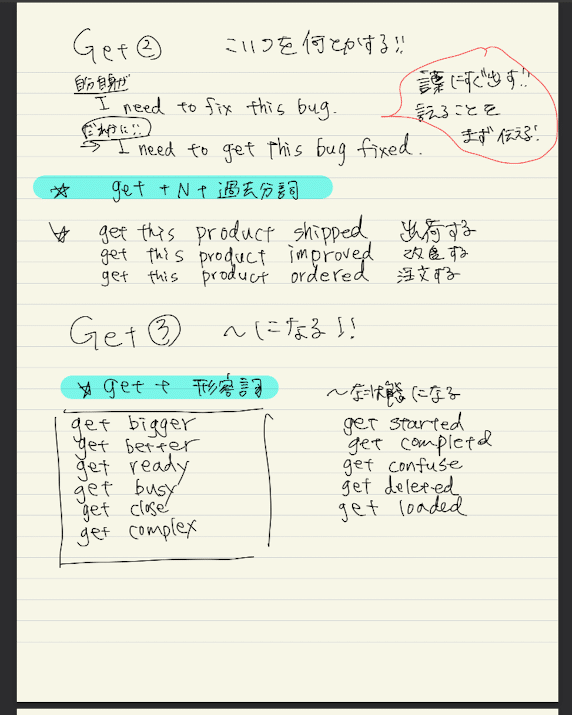 Get ② こいつを何とかする!!
自分自身が
I need to fix this bug.
だれかに!!
→ I need to get this bug fixed.
言葉にすぐ出す!!
言えることを
まず伝える!
☆ get + N + 過去分詞
get this product shipped 出荷する
get this product improved 改良する
get this product ordered 注文する
Get ③ 〜になる!!
get + 形容詞
〜な状態になる
get bigger
get better
get ready
get busy
get close
get complex
get started
get completd
get confuse
get deleted
get loaded